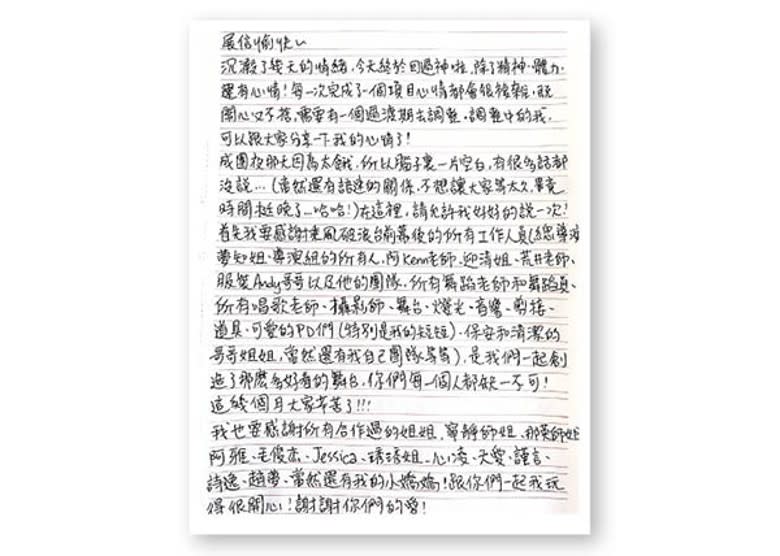 展信愉快～
沉澱了幾天的情緒,今天終於回過神啦,除了精神、體力,
還有心情!每一次完成了一個項目心情都會很複雜,既
開心又不捨,需要有一個過渡期去調整,調整中的我,
可以跟大家分享一下我的心情了!
成團夜那天因為太餓,所以腦子裏一片空白,有很多話都
沒說...(當然還有語速的關係,不想讓大家等太久,畢竟
時間挺晚了...哈哈!)在這裡,請允許我好好的說一次!
首先我要感謝乘風破浪台前幕後的所有工作人員(總導演
夢知姐、導演組的所有人,阿Kenn老師、迎清姐、荒井老師、
服裝Andy哥哥以及他的團隊,所有舞蹈老師和舞蹈員、
所有唱歌老師、攝影師、舞台、燈光、音響、剪接、
道具、可愛的PD們(特別是我的短短)、保安和清潔的
哥哥姐姐,當然還有我自己團隊等等),是我們一起創
造了那麼多好看的舞台,你們每一個人都缺一不可!
這幾個月大家辛苦了!!!
我也要感謝所有合作過的姐姐,寧靜師姐、那英師姐
阿雅、毛俊杰、Jessica、琇琇姐、心凌、天愛、謹言、
詩逸、趙夢、當然還有我的小嬌嬌!跟你們一起我玩
得很開心!謝謝你們的愛!